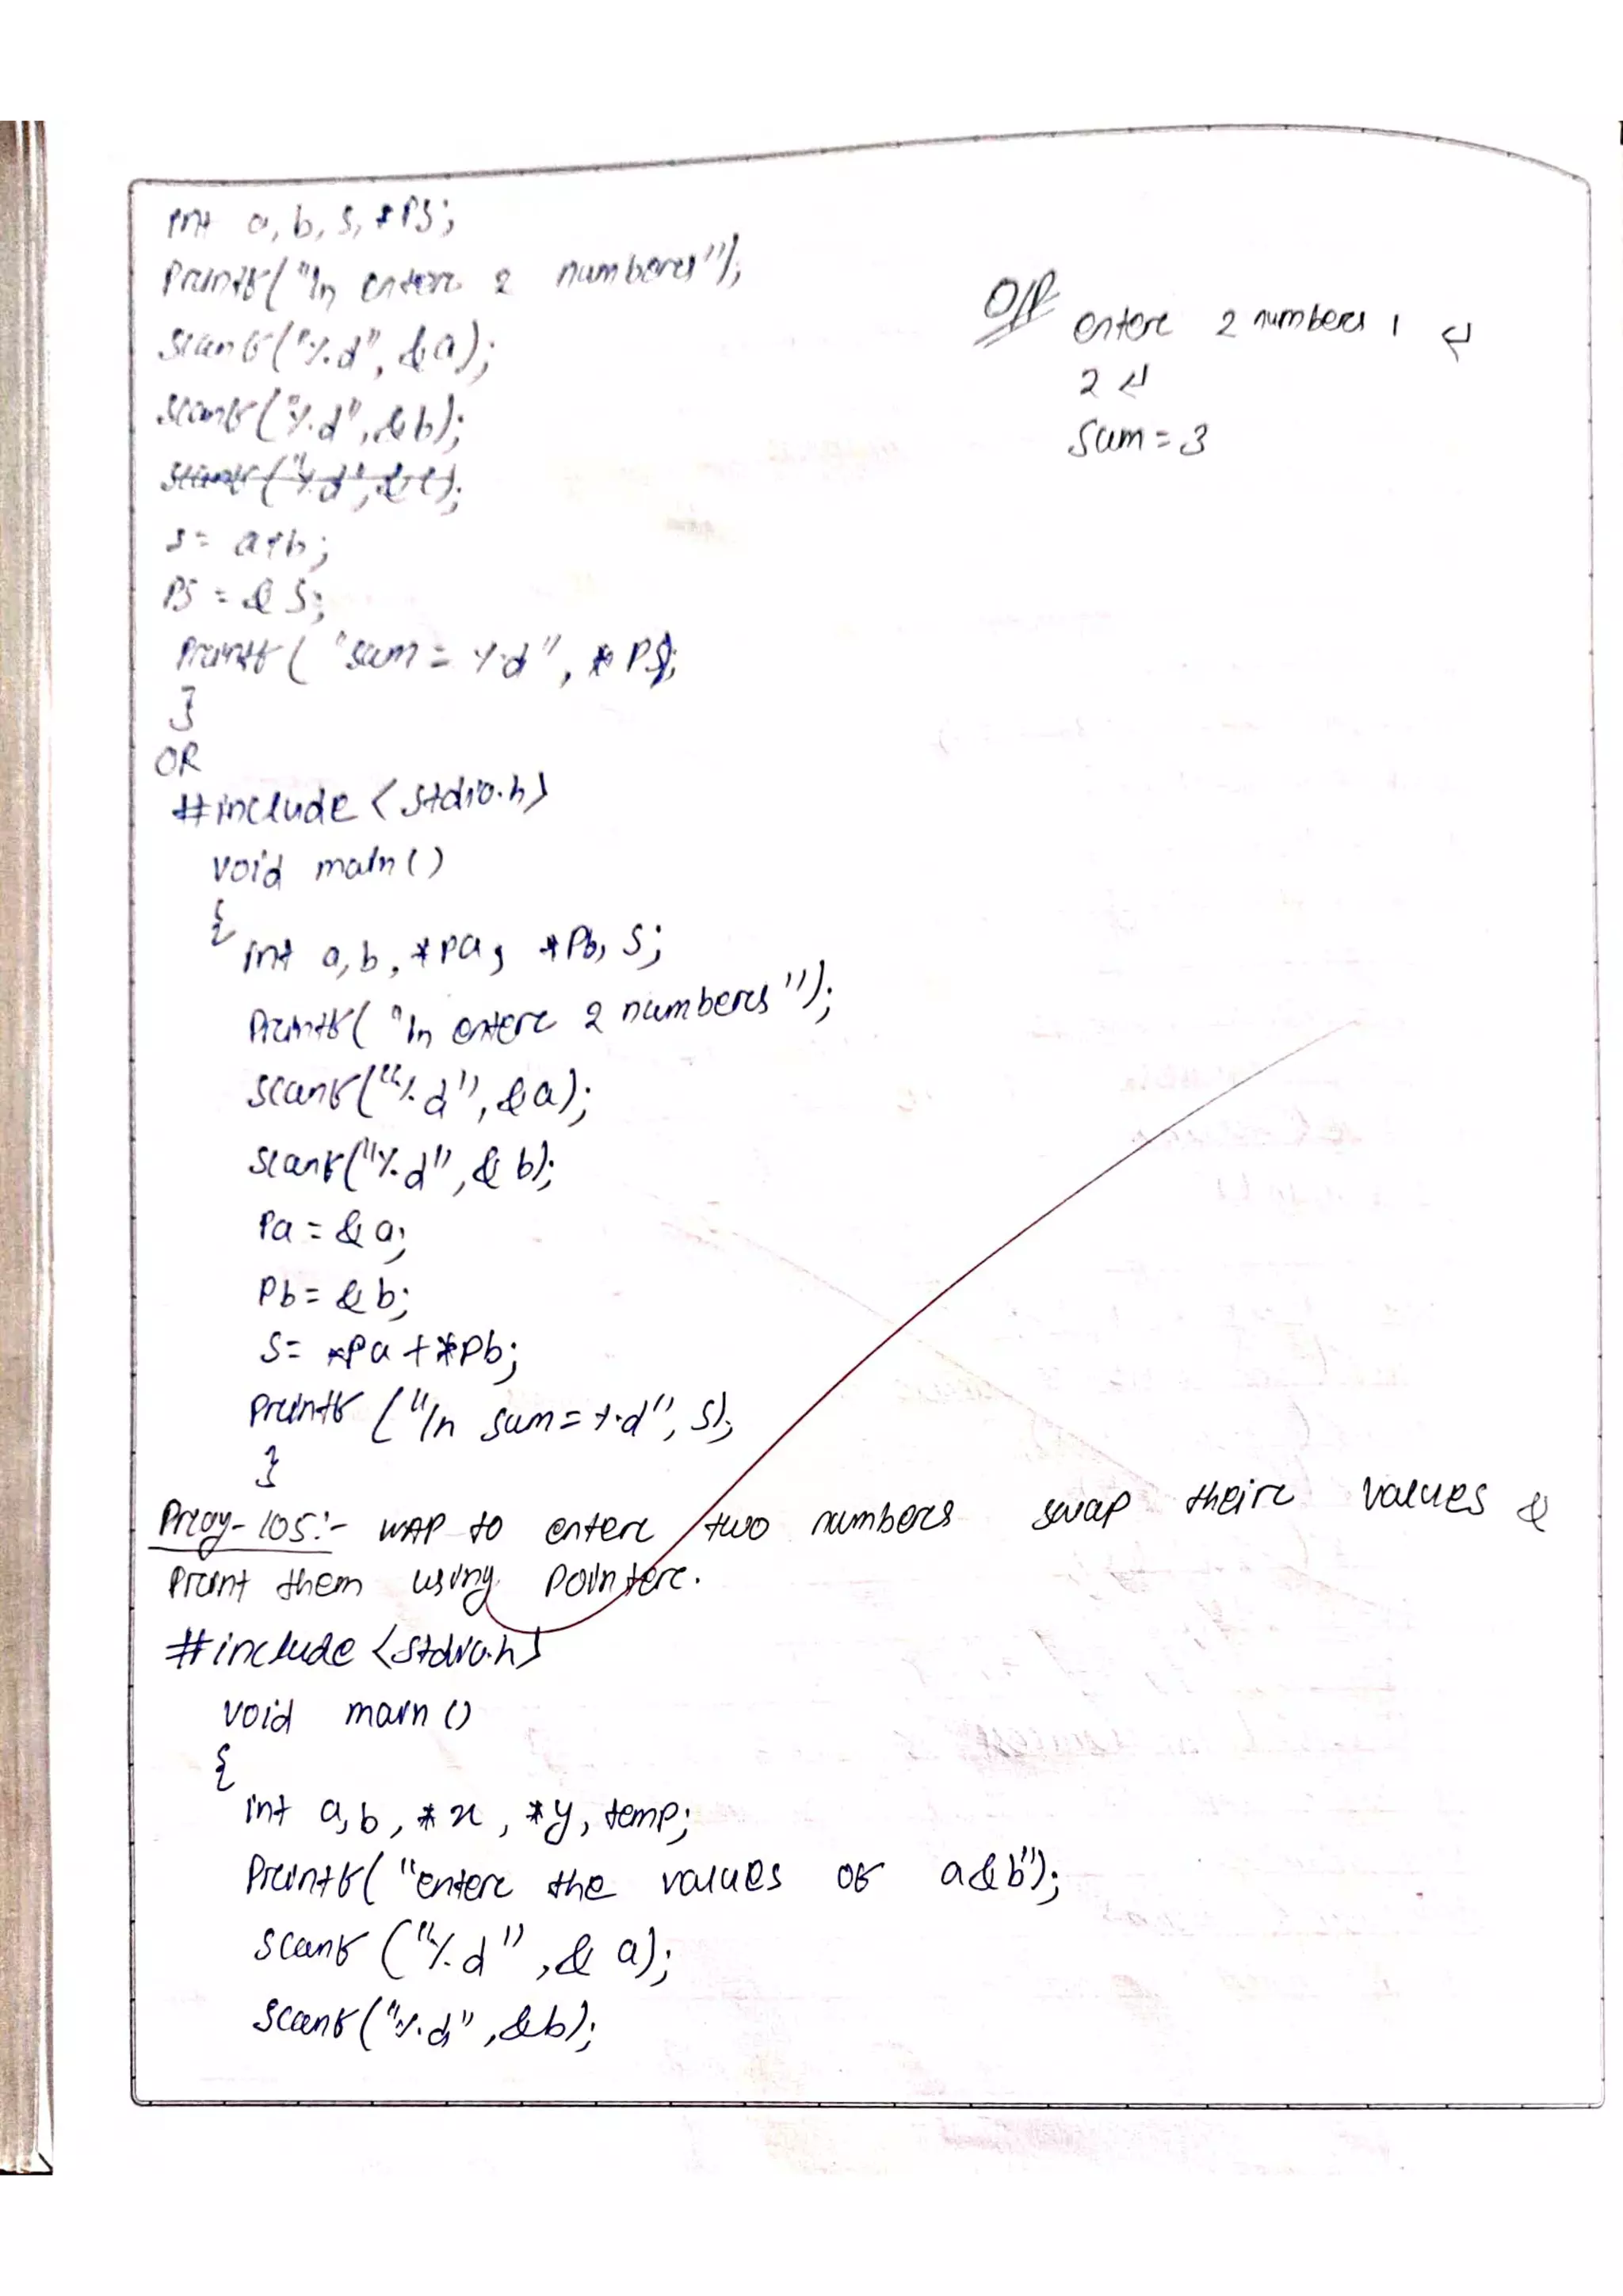 int a, b, s, *ps;
Printf("\n enter 2 numbers");
scanf("%d", &a);
scanf("%d", &b);
scanf("%d", &c);
s = a+b;
Ps = & s;
Printf( "sum = %d", * Ps);
}
OR
#include <stdio.h>
void main()
{
int a, b, *pa, *Pb, s;
Printf( "\n enter 2 numbers");
scanf("%d", &a);
scanf("%d", & b);
Pa = & a;
Pb = & b;
s = *pa + *pb;
printf ("\n sum = %d", s);
}
Prog-105:- WAP to enter two numbers swap their values &
Print them using pointer.
#include <stdio.h>
void main ()
{
int a, b, *x, *y, temp;
Printf( "enter the values of a&b");
scanf ("%d", & a);
scanf("%d", &b);
O/P enter 2 numbers 1 ↵
2 ↵
Sum = 3